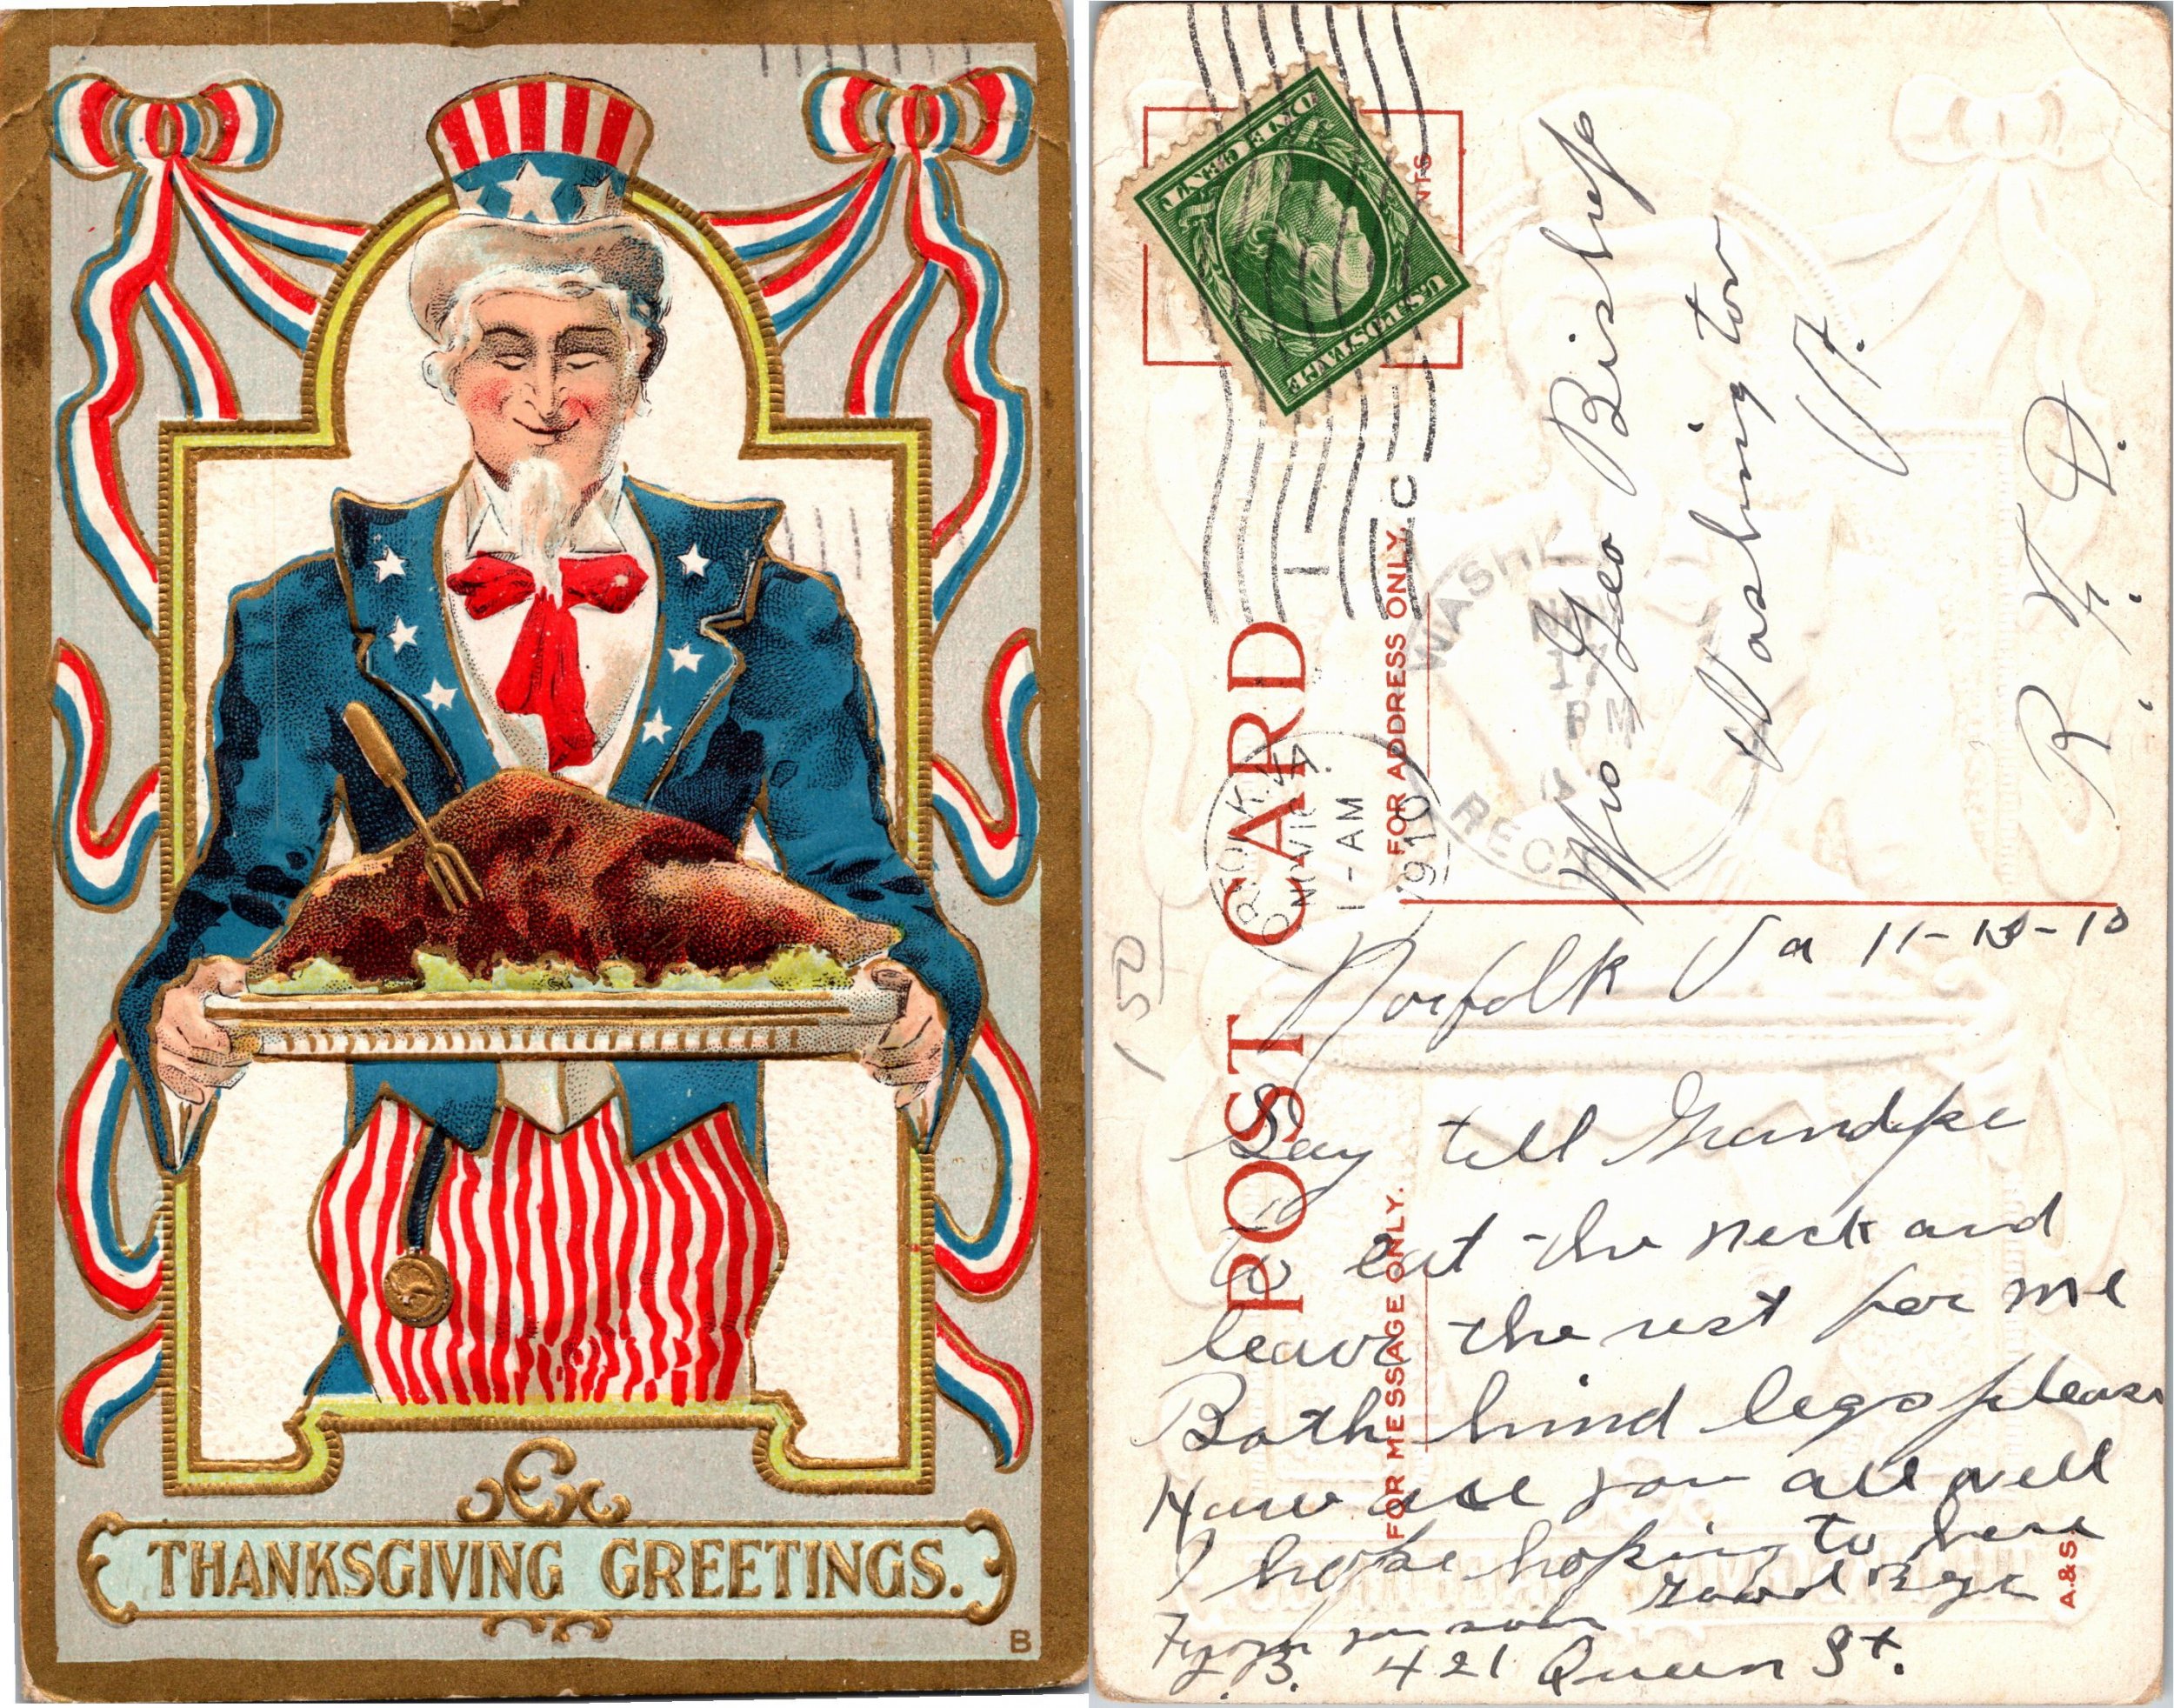 THANKSGIVING GREETINGS.
B
POST CARD
FOR ADDRESS ONLY.
FOR MESSAGE ONLY.
A.&S.
U.S. POSTAGE
ONE CENT
1-AM
1910
NOV
17
PM
REC'D
150
Geo Bishop
Washington
Vt.
R. F. D.
Norfolk Va 11-13-10
Say tell Grandpa
to eat the neck and
leave the rest for me
Both hind legs please
How are you all well
I hope hoping to here
Good Bye
From your son
L.B. 421 Queen St.